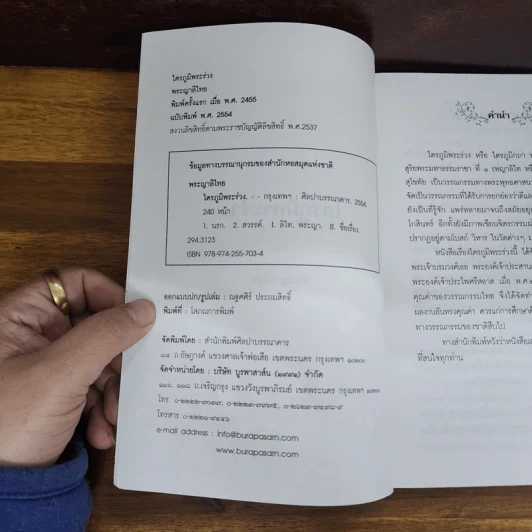 ไตรภูมิพระร่วง
พระญาลิไทย
พิมพ์ครั้งแรก เมื่อ พ.ศ. 2455
ฉบับพิมพ์ พ.ศ. 2554
สงวนลิขสิทธิ์ตามพระราชบัญญัติลิขสิทธิ์ พ.ศ.2537
ข้อมูลทางบรรณานุกรมของสำนักหอสมุดแห่งชาติ
พระญาลิไทย
ไตรภูมิพระร่วง. -- กรุงเทพฯ : ศิลปาบรรณาคาร, 2554.
240 หน้า
1. นรก. 2. สวรรค์. I. ลิไท, พระญา. II. ชื่อเรื่อง.
294.3123
ISBN 978-974-255-703-4
ออกแบบปก/รูปเล่ม : ณฐศศิร์ ประถมสิทธิ์
พิมพ์ที่ : โสภณการพิมพ์
จัดพิมพ์โดย : สำนักพิมพ์ศิลปาบรรณาคาร
๘๔ ถ.อัษฎางค์ แขวงศาลเจ้าพ่อเสือ เขตพระนคร กรุงเทพฯ ๑๐๒๐๐
จัดจำหน่ายโดย : บริษัท บูรพาสาส์น (๑๙๙๑) จำกัด
ถ.เจริญกรุง แขวงวังบูรพาภิรมย์ เขตพระนคร กรุงเทพฯ
โทร.
โทรสาร
e-mail address : info@burapasarn.com
www.burapasarn.com
คำนำ
ไตรภูมิพระร่วง หรือ ไตรภูมิกถา
สุริยพระมหาธรรมราชา ที่ ๑ (พญาลิไท
สุโขทัย เป็นวรรณกรรมทางพระพุทธศาสนา
จัดเป็นวรรณกรรมที่ได้รับการยกย่องว่าดี
ยังเป็นที่รู้จัก แพร่หลายมาจนถึงสมัย
โกสินทร์ อีกทั้งยังมีภาพเขียนจิตรกรรม
ปรากฏอยู่ตามโบสถ์ วิหาร ในวัดต่างๆ
หนังสือเรื่องไตรภูมิพระร่วงนี้
พระเจ้าบรมวงศ์เธอ พระองค์เจ้าประสาน
พระองค์เจ้าประไพศรีสอาด เมื่อ พ.ศ.
คุณค่าของวรรณกรรมไทย จึงได้จัด
ผลงานอันทรงคุณค่า ควรแก่การศึกษา
ทางวรรณกรรมของชาติสืบไป
ทางสำนักพิมพ์หวังว่าหนังสือ
ที่สนใจทุกท่าน